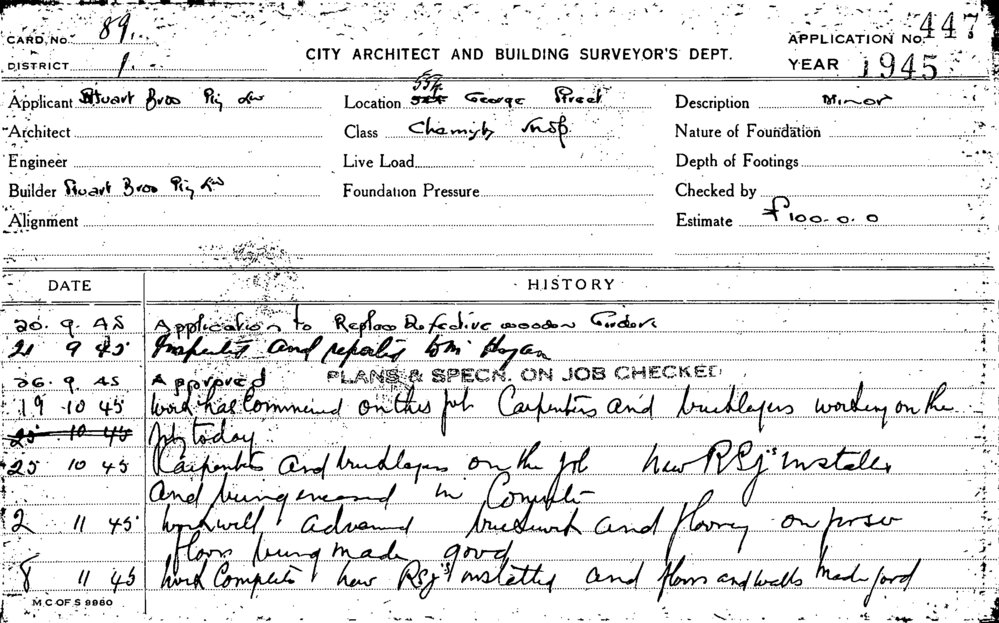 CARD. No. 89.
APPLICATION No. 447
CITY ARCHITECT AND BUILDING SURVEYOR'S DEPT.
DISTRICT 1.
YEAR 1945
Applicant Stuart Bros Pty Ltd
Location 554 George Street
Description Minor
Architect
Class Shop
Nature of Foundation
Engineer
Live Load
Depth of Footings
Builder Stuart Bros Pty Ltd
Foundation Pressure
Checked by
Alignment
Estimate £100.0.0
DATE HISTORY
20.9.45 Application to Replace Defective wooden Girders
21 9 45 Inspected and reported to Mr Hogan
26.9.45 Approved PLANS & SPECN. ON JOB CHECKED
19 10 45 Work has Commenced on this job Carpenters and bricklayers working on the
25 10 45 job today
25 10 45 Carpenters and bricklayers on the job new RSJ's installed
and being encased in Concrete
2 11 45 Work well advanced brickwork and flooring on
floors being made good
8 11 45 Work Complete new RSJ's installed and floors and walls made good
M C OF S 9980